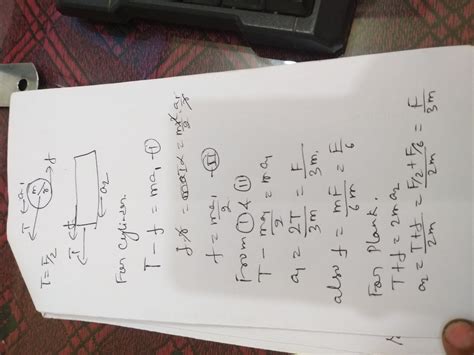 T = F/2
T a₁
m
r
f
T f
a₂
For cylinder
T - f = ma₁ -(I)
f = ma₁/2 -(II)
From (I) & (II)
T - ma₁/2 = ma₁
a₁ = 2T/3m = F/3m
also f = mF/6m = F/6
For Plank.
T + f = 2ma₂
a₂ = (T+f)/2m = (F/2 + F/6)/2m = F/3m